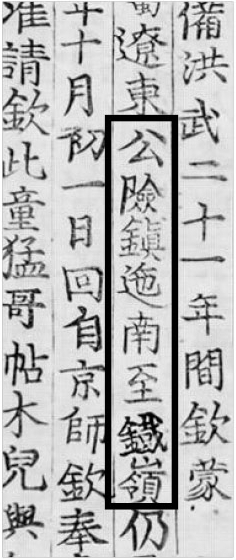 備洪武二十一年間欽蒙
遼東公險鎮迤南至鐵嶺仍
年十月初一日回自京師欽奉
准請欽此童猛哥帖木兒與